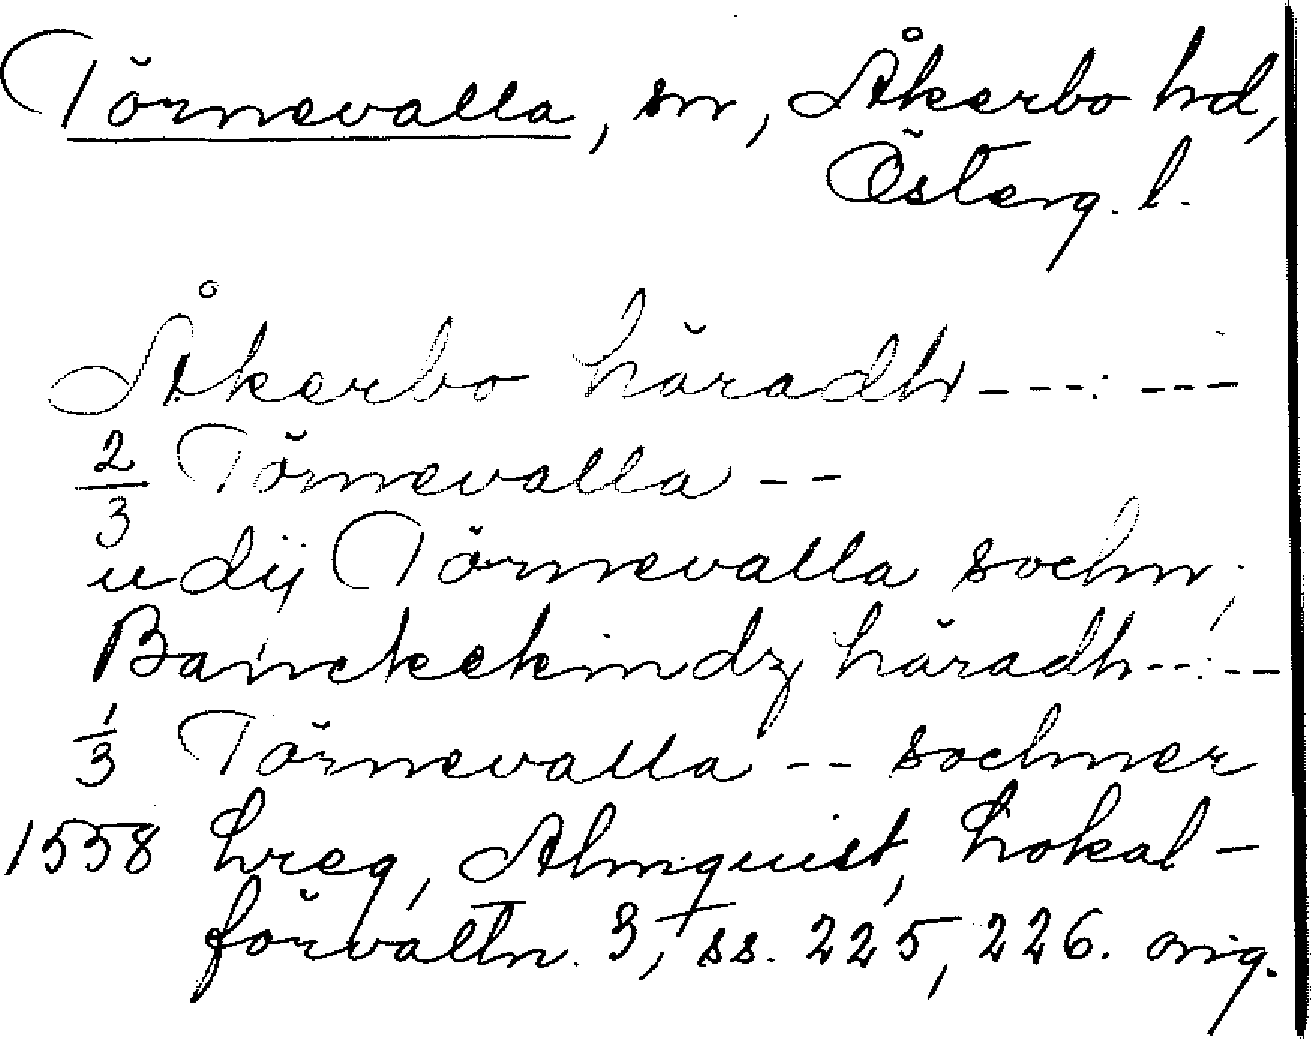 Törnevalla, sn, Åkerbo hd,
Österg. l.
Åkerbo häradh ---:---
2/3 Törnevalla --
udij Törnevalla sochn;
Banckekindz häradh --:--
1/3 Törnevalla -- sochner
1558 Lreg, Almquist, Lokal-
förvaltn. 3, ss. 225, 226. orig.